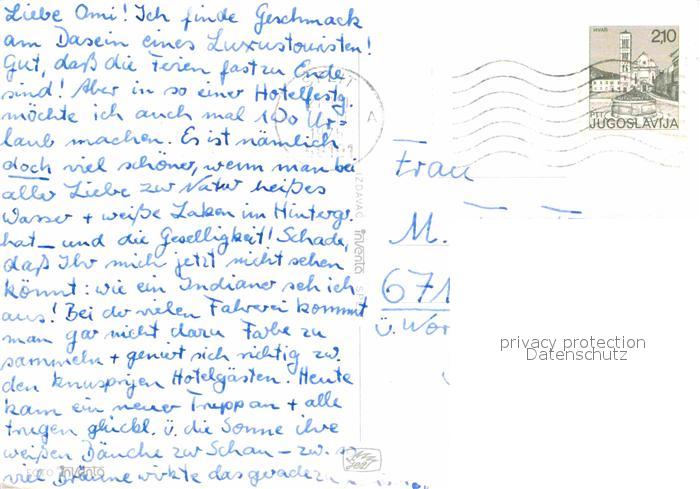 Liebe Omi! Ich finde Geschmack
am Dasein eines Luxustouristen!
Gut, daß die Ferien fast zu Ende
sind! Aber in so einer Hotelfestg.
möchte ich auch mal 1 Wo Ur=
laub machen. Es ist nämlich
doch viel schöner, wenn man bei
aller Liebe zur Natur heißes
Wasser + weiße Laken im Hintergr.
hat – und die Geselligkeit! Schade,
daß Ihr mich jetzt nicht sehen
könnt: wie ein Indianer seh ich
aus! Bei der vielen Fahrerei kommt
man gar nicht dazu Farbe zu
sammeln + geniert sich richtig zw.
den knusprigen Hotelgästen. Heute
kam ein neuer Trupp an + alle
trugen glückl. ü. die Sonne ihre
weißen Bäuche zur Schau – zw. so
viel Bräune wirkte das gerade
HVAR
2,10
PTT
JUGOSLAVIJA
Frau
M.
671
ü. Wor
IZDAVAČ invento
FOTO invento
privacy protection
Datenschutz